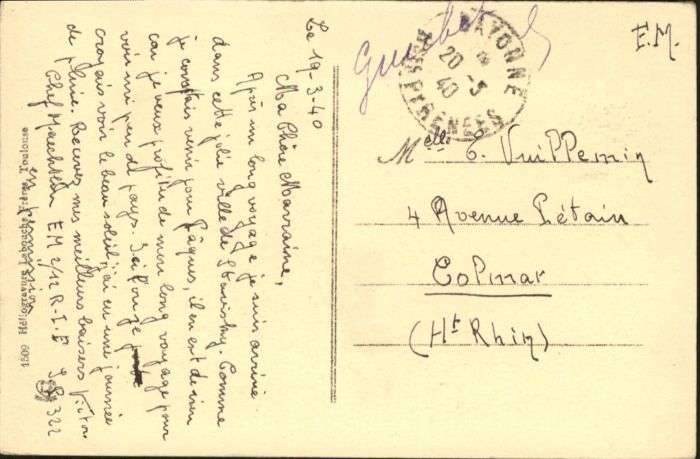 Le 19-3-40
Ma Chère Marraine,
Après un long voyage je suis arrivé
dans cette jolie ville de Stavisky. Comme
je comptais venir pour Pâques, il en est de rien
car je veux profiter de mon long voyage pour
voir un peu de pays. Seul que je
croyais voir le beau soleil, j'ai eu une journée
de pluie. Recevez mes meilleurs baisers Victor
Chef Maechtlen EM 2/12 R-I-F SP 322
1509 Héliogravure Labouche Frères, Toulouse
E.M.
BAYONNE
20-3
40
BSSES PYRÉNÉES
Melle. E. Vuillemin
4 Avenue Pétain
Colmar
(Ht Rhin)